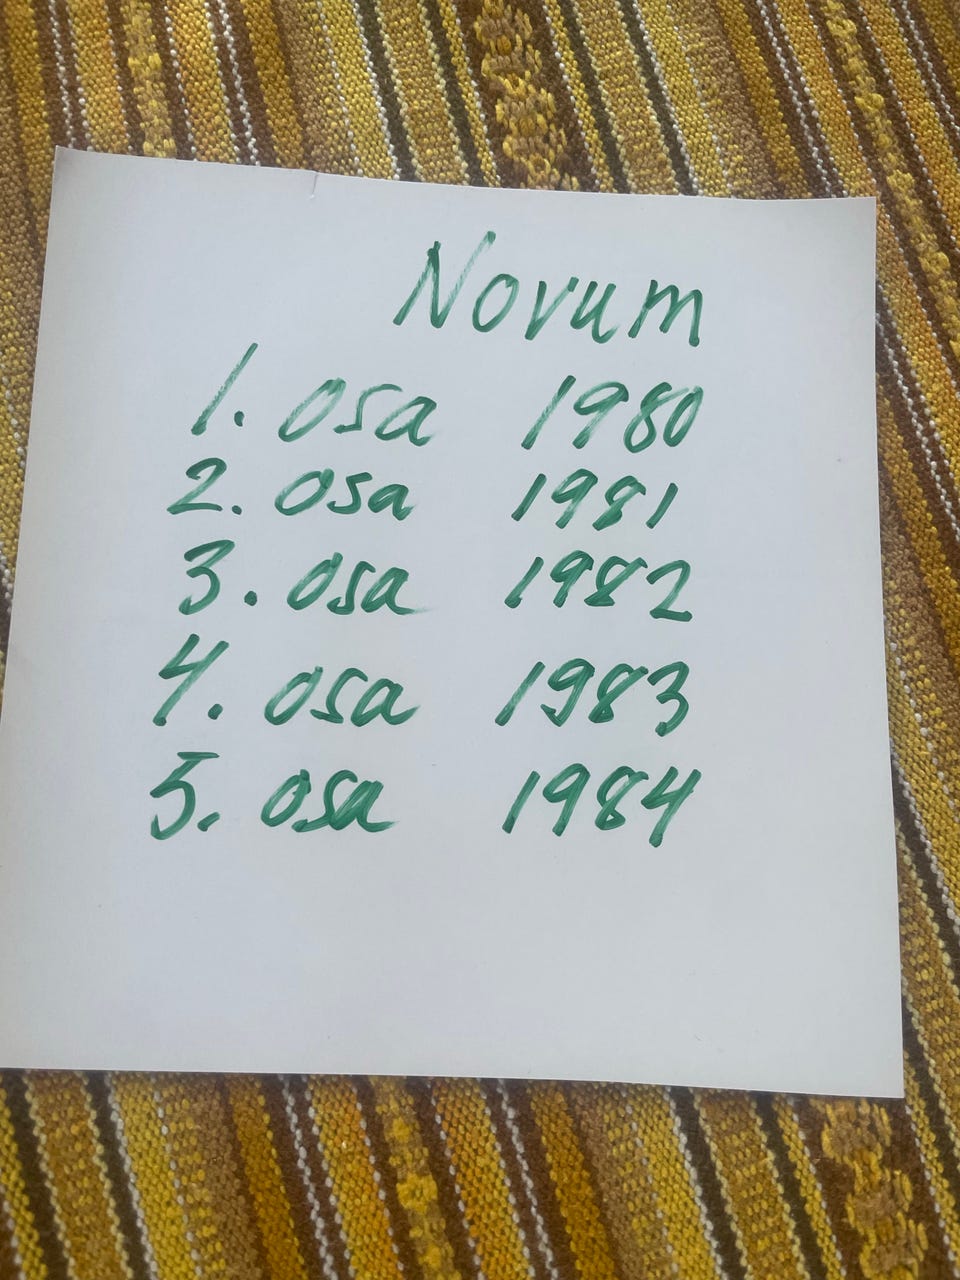 Novum
1. osa 1980
2. osa 1981
3. osa 1982
4. osa 1983
5. osa 1984